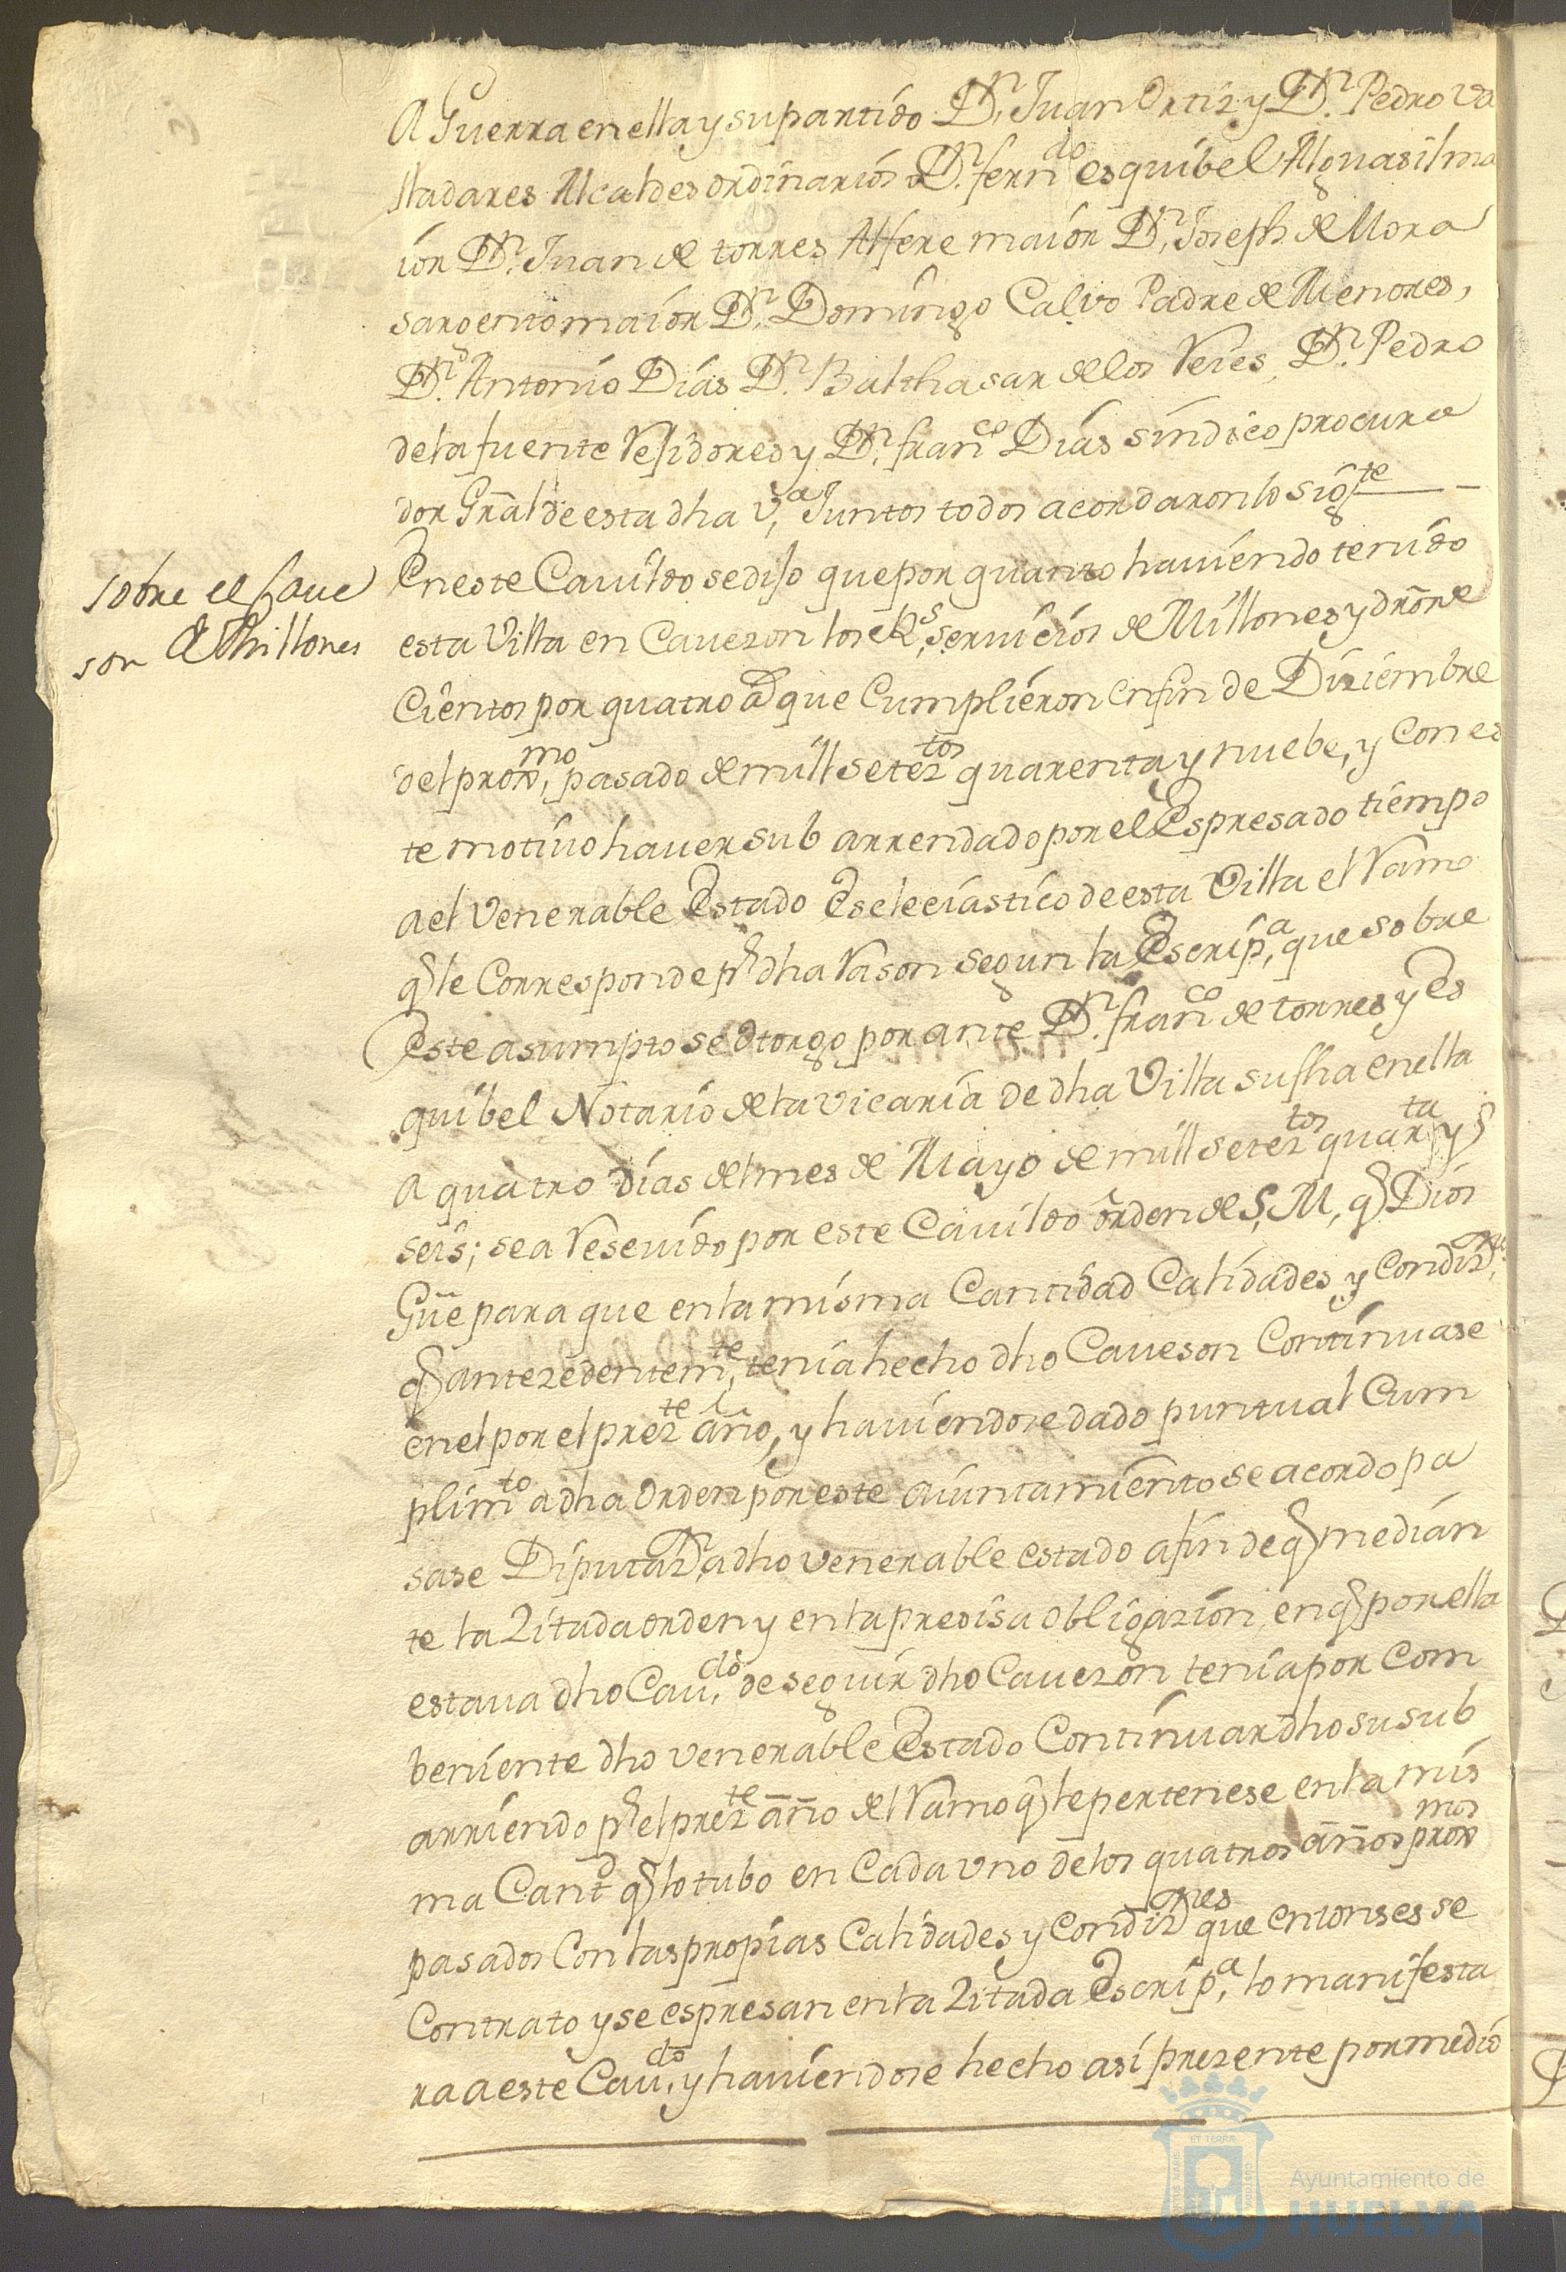 A Guerra en ella y su partido Dn. Juan Ortiz y Dn. Pedro Va
lladares Alcaldes ordinarios Dn. ferndo esquibel Alguasil ma
ior Dn. Juan de torres Alfere maior Dn. Joseph de Mora
sargento maior Dn. Domingo Calvo Padre de Menores,
Dn. Antonio Dias Dn. Balthasar de los Reies, Dn. Pedro
de la fuente Rejidores y Dn. franco Dias sindico procura
dor Gral de esta dha va Juntos todos acordaron lo sigte
sobre el Cave
son de Millones
En este Cavildo se dijo que por quanto haviendo tenido
esta Villa en Cavezon los Rs. servicios de Millones y dros de
Cientos por quatro as que Cumplieron en fin de Diziembre
del proxmo, pasado de mill seteztos quarenta y nuebe, y con es
te motivo haver sub arrendado por el Espresado tiempo
a el Venerable Estado Eseleciastico de esta Villa el Ramo
q le Corresponde pr dha Rason segun la Escripa, que sobre
Este asumpto se otorgo por ante Dn. franco de torres y Es
quibel Notario de la vicaria de dha Villa su fha en ella
a quatro dias del mes de Mayo de mill seteztos quarta y
seis; se a Resevido por este Cavildo orden de S, M, q Dios
Gue para que en la misma Cantidad Calidades y Condizes,
q antezedentemte, tenia hecho dho Caveson Continuase
en el por el prezte año, y haviendose dado puntual Cum
plimto a dha Orden por este aiuntamiento se acordo pa
sase Diputazn, a dho venerable estado a fin de q median
te la Zitada orden y en la presisa obligazion en q por ella
estava dho Cavdo, de seguir dho Cavezon tenia por Com
beniente dho venerable Estado Continuar dho su sub
arriendo pr el prezte año del Ramo q le pertenese en la mis
ma Cantd q lo tubo en Cada uno de los quatros años proxmos
pasados Con las propias Calidades y Condizes que entonses se
Contrato y se espresan en la Zitada Escripa, lo manifesta
ra a este Cavdo, y haviendose hecho asi prezente por medio
Ayuntamiento de
HUELVA